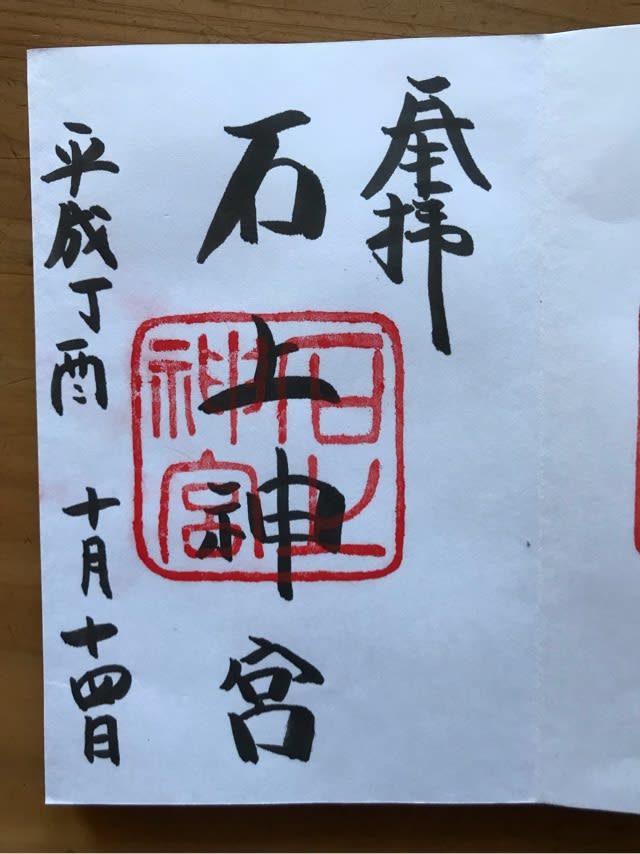 奉拝
石上神宮
石上神宮
平成丁酉 十月十四日